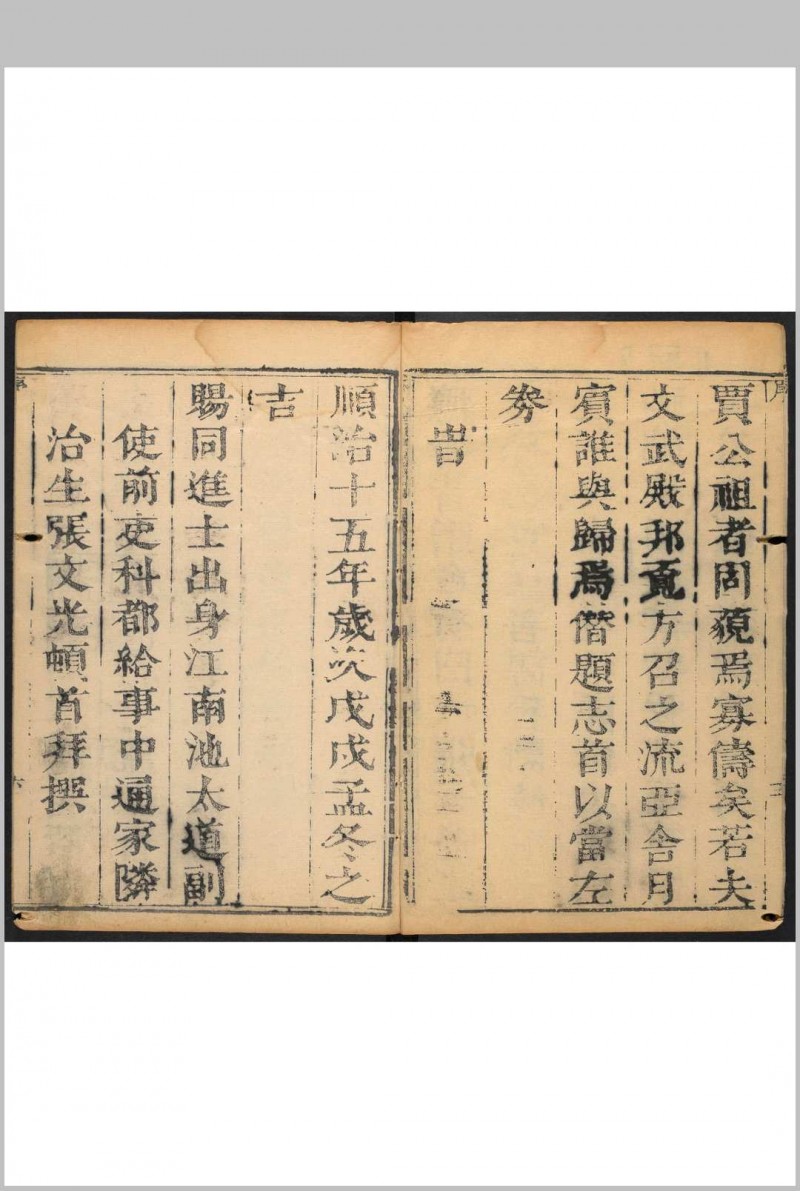 序
賈公祖者固藐焉寡儔矣若夫
文武殿邦寬方召之流亞舍月
賓誰與歸焉僭題志首以當左
券
旹
順治十五年歲次戊戌孟冬之
吉
賜同進士出身江南池太道副
使前吏科都給事中通家隣
治生張文光頓首拜撰